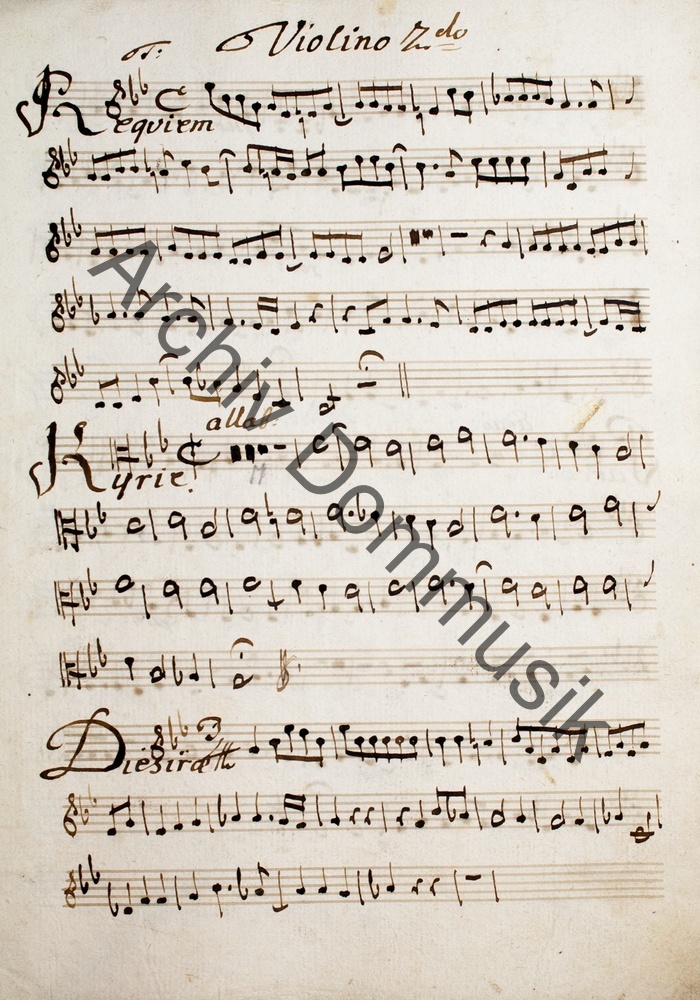 Violino 2do
Requiem
allab.
Kyrie.
Dies iræ
Archiv Dommusik